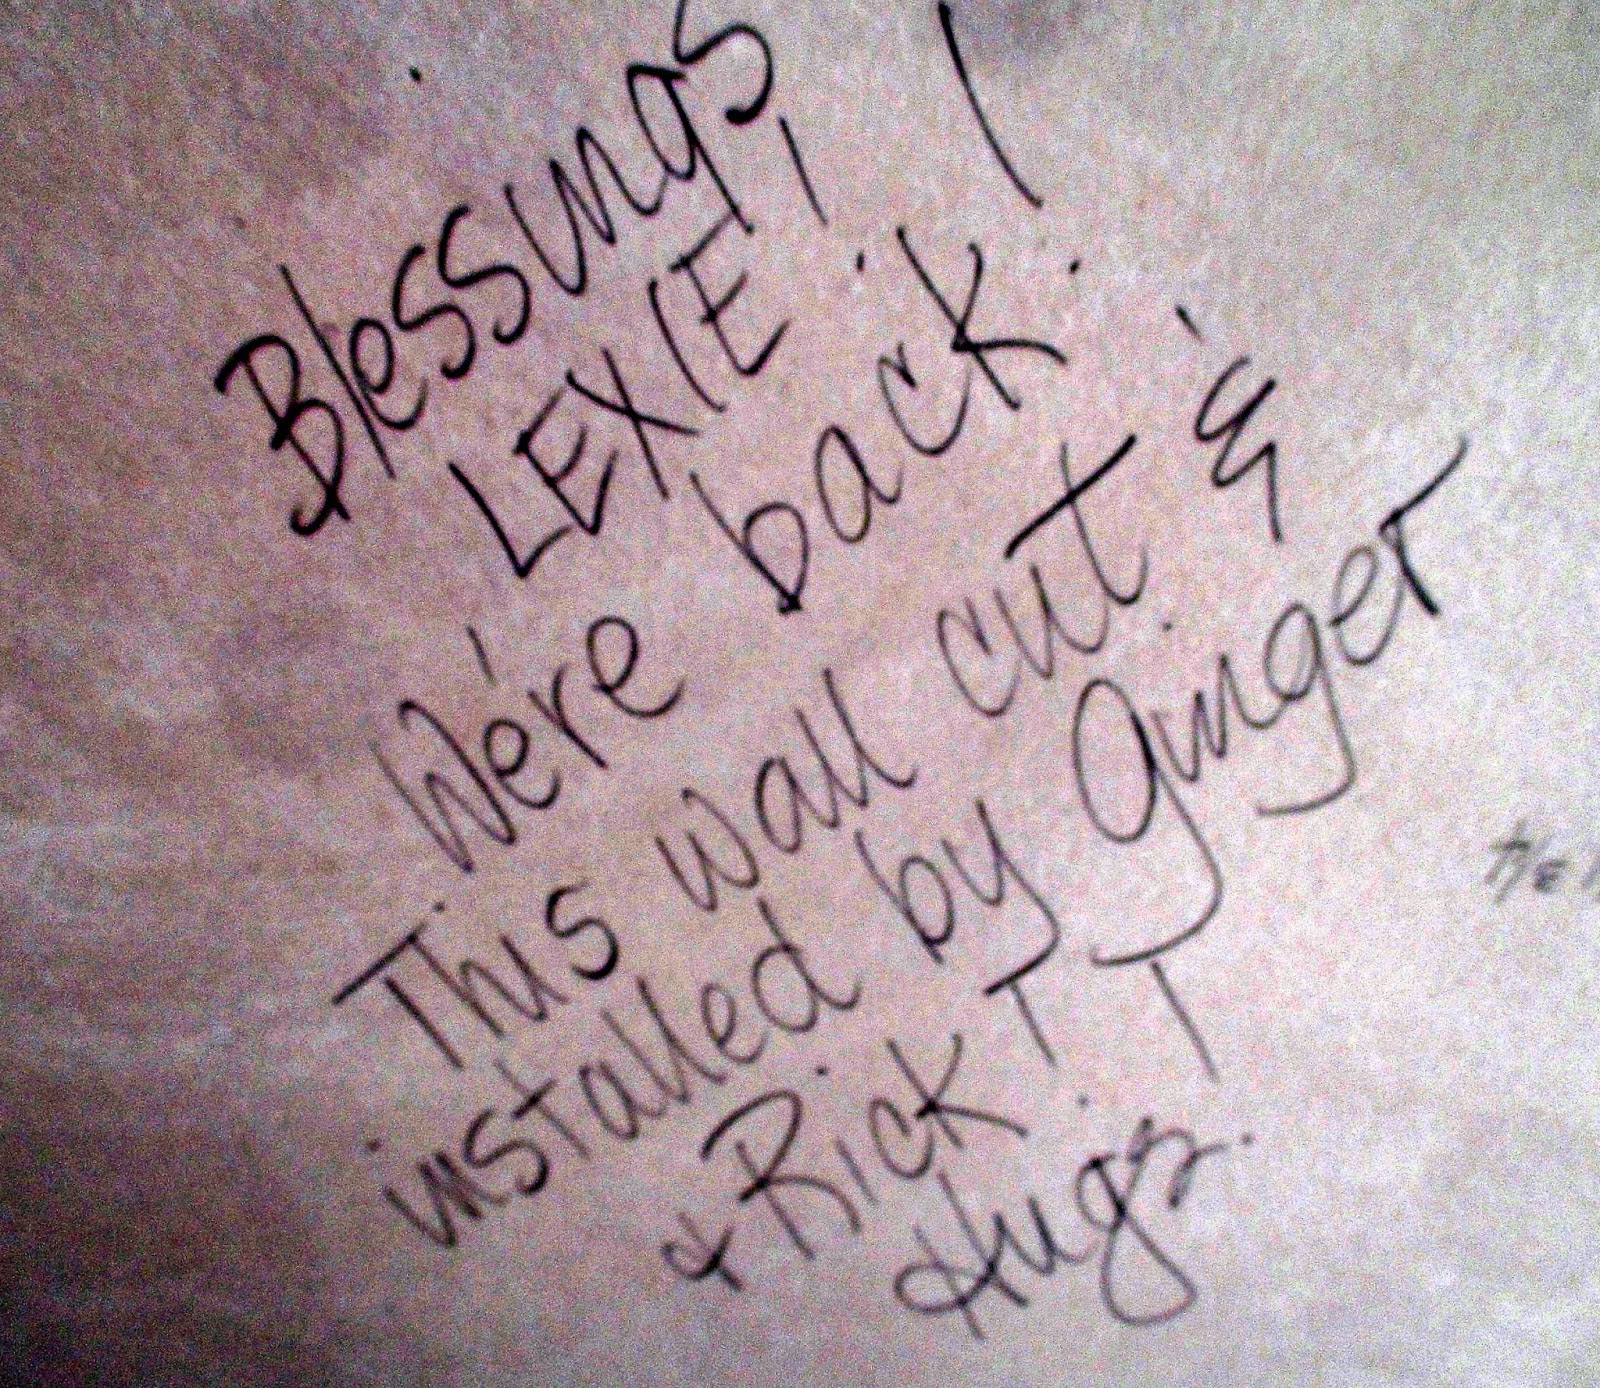 Blessings,
LEXIE!
We're back!
This wall cut &
installed by Ginger
& Rick TT
Hugs.